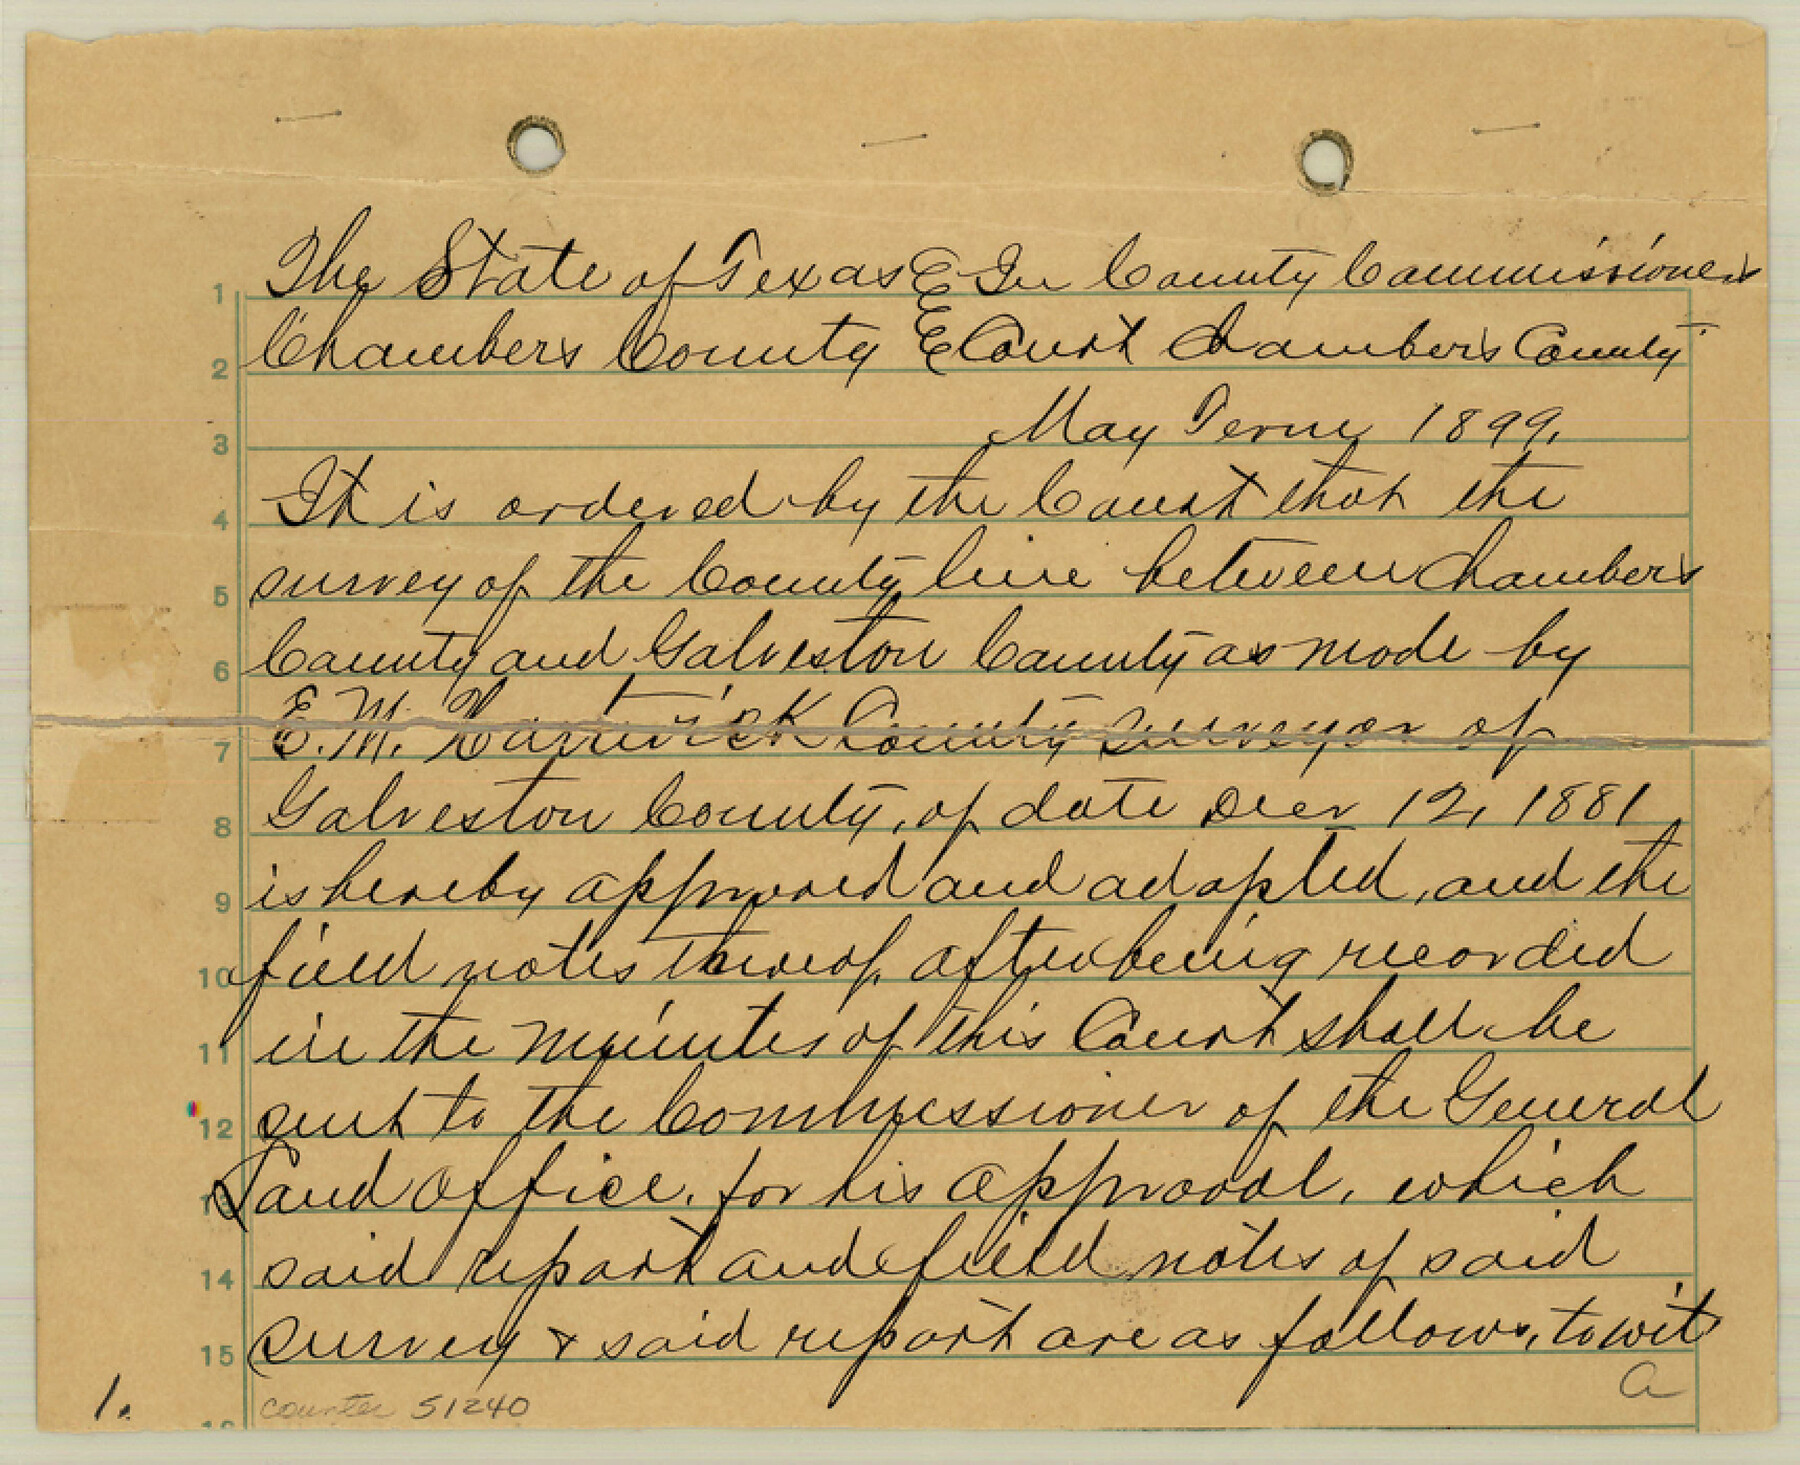 The State of Texas In County Commissioners
1
Chambers County Court Chambers County
2
May Term 1899.
3
It is ordered by the Court that the
4
survey of the County line between Chambers
5
County and Galveston County as made by
6
E.M. Hartrick County Surveyor of
7
Galveston County, of date Decr 12, 1881
8
is hereby approved and adopted, and the
9
field notes thereof, after being recorded
10
in the minutes of this Court shall be
11
sent to the Commissioner of the General
12
Land Office, for his approval, which
13
said report and field notes of said
14
survey & said report are as follows, towit
15
1. counter 51240 a